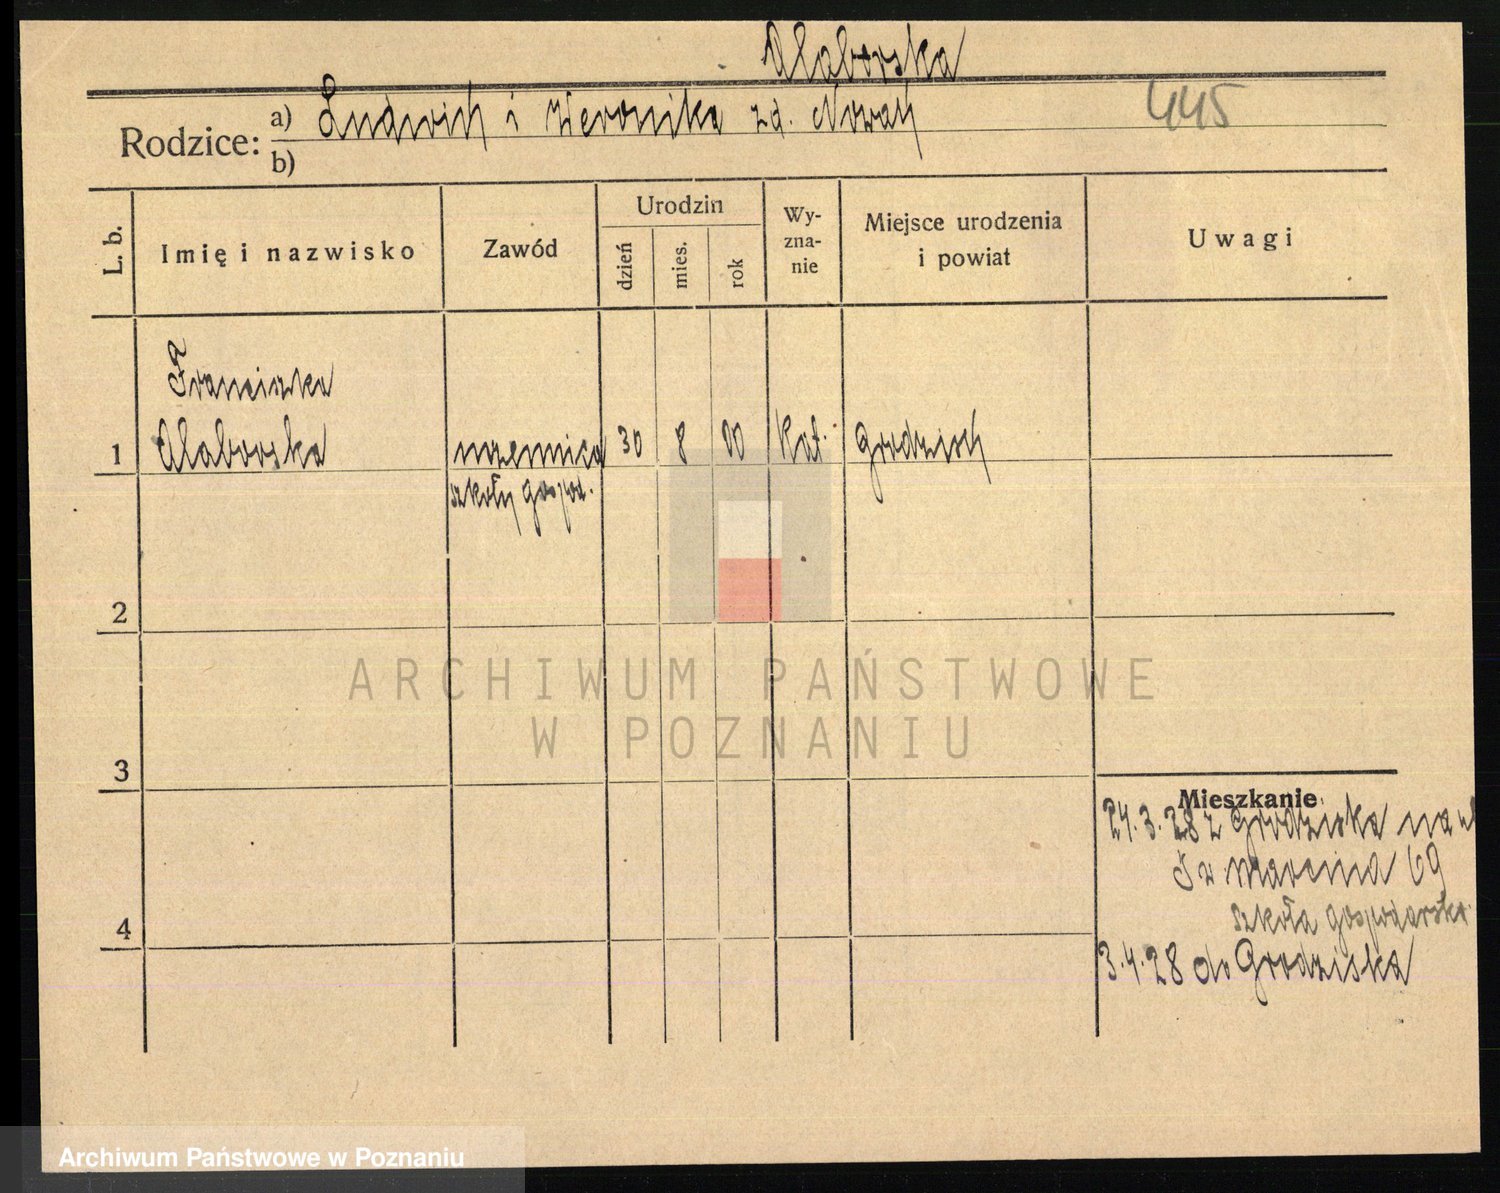 Alaborska
445
Rodzice: a) Ludwich i Weronika zd. Nowak
b)
L. b.
Imię i nazwisko
Zawód
Urodzin
dzień
mies.
rok
Wy-
zna-
nie
Miejsce urodzenia
i powiat
Uwagi
Franciszka
1 Alaborska uczennica 30 8 00 Kat. Grodzisk
szkoły gospod.
2
3
4
Mieszkanie
24.3.28 z Grodziska na ul
Św Marcina 69
szkoła gospodarsk.
3.4.28 do Grodziska
ARCHIWUM PAŃSTWOWE
W POZNANIU
Archiwum Państwowe w Poznaniu